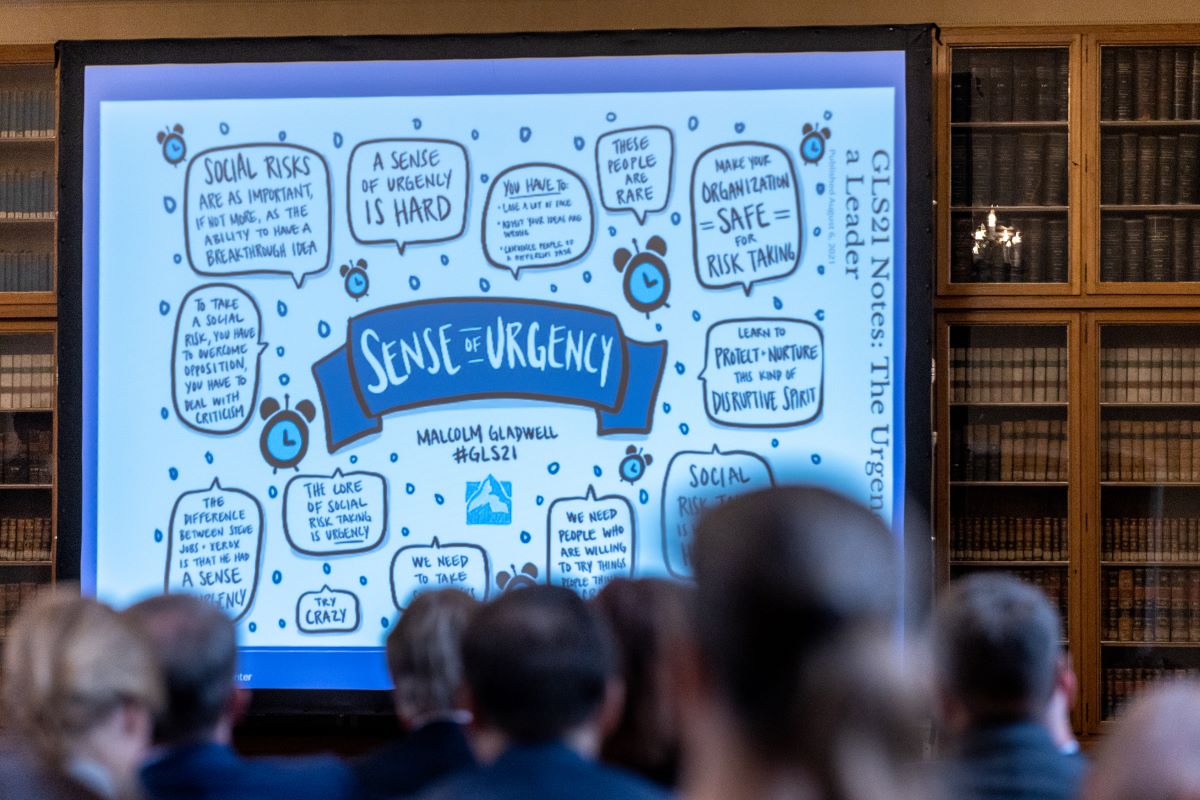 SOCIAL RISKS
ARE AS IMPORTANT,
IF NOT MORE, AS THE
ABILITY TO HAVE A
BREAKTHROUGH IDEA
A SENSE
OF URGENCY
IS HARD
YOU HAVE TO:
• LOSE A LOT OF FACE
• ADMIT YOUR IDEAS ARE
WRONG
• CONVINCE PEOPLE TO
A DIFFERENT
THESE
PEOPLE
ARE
RARE
MAKE YOUR
ORGANIZATION
= SAFE =
FOR
RISK TAKING
GLS21 Notes: The Urgen
a Leader
Published August 6, 2021
TO TAKE
A SOCIAL
RISK, YOU HAVE
TO OVERCOME
OPPOSITION,
YOU HAVE TO
DEAL WITH
CRITICISM
SENSE OF URGENCY
MALCOLM GLADWELL
#GLS21
LEARN TO
PROTECT + NURTURE
THIS KIND OF
DISRUPTIVE SPIRIT
THE
DIFFERENCE
BETWEEN STEVE
JOBS + XEROX
IS THAT HE HAD
A SENSE
URGENCY
THE CORE
OF SOCIAL
RISK TAKING
IS URGENCY
TRY
CRAZY
WE NEED
TO TAKE
WE NEED
PEOPLE WHO
ARE WILLING
TO TRY THINGS
PEOPLE
SOCIAL
RISK
IS
nter